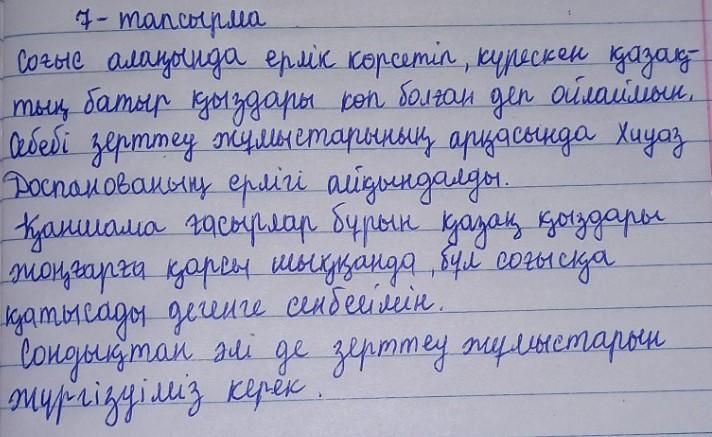 7- тапсырма
Соғыс алаңында ерлік көрсетіп, күрескен қазақ-
тың батыр қыздары көп болған деп ойлаймын.
Себебі зерттеу жұмыстарының арқасында Хиуаз
Доспанованың ерлігі айқындалды.
Қаншама ғасырлар бұрын қазақ қыздары
жоңғарға қарсы шыққанда, бұл соғысқа
қатысады дегенге сенбеймін.
Сондықтан әлі де зерттеу жұмыстарын
жүргізуіміз керек.